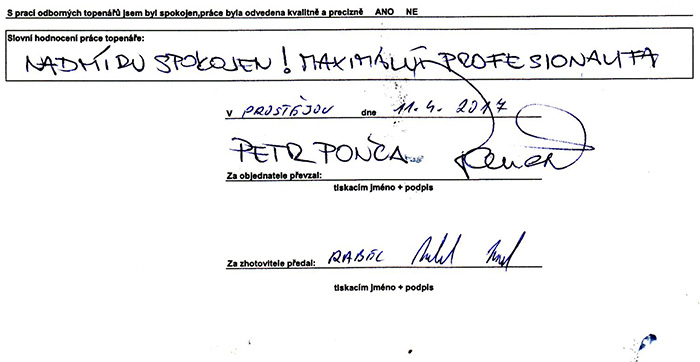 S prací odborných topenářů jsem byl spokojen,práce byla odvedena kvalitně a precizně ANO NE
Slovní hodnocení práce topenáře:
NADMÍRU SPOKOJEN! MAXIMÁLNÍ PROFESIONALITA
v PROSTĚJOV dne 11.4. 2017
PETR PONČA
Za objednatele převzal:
tiskacím jméno + podpis
Za zhotovitele předal:
tiskacím jméno + podpis